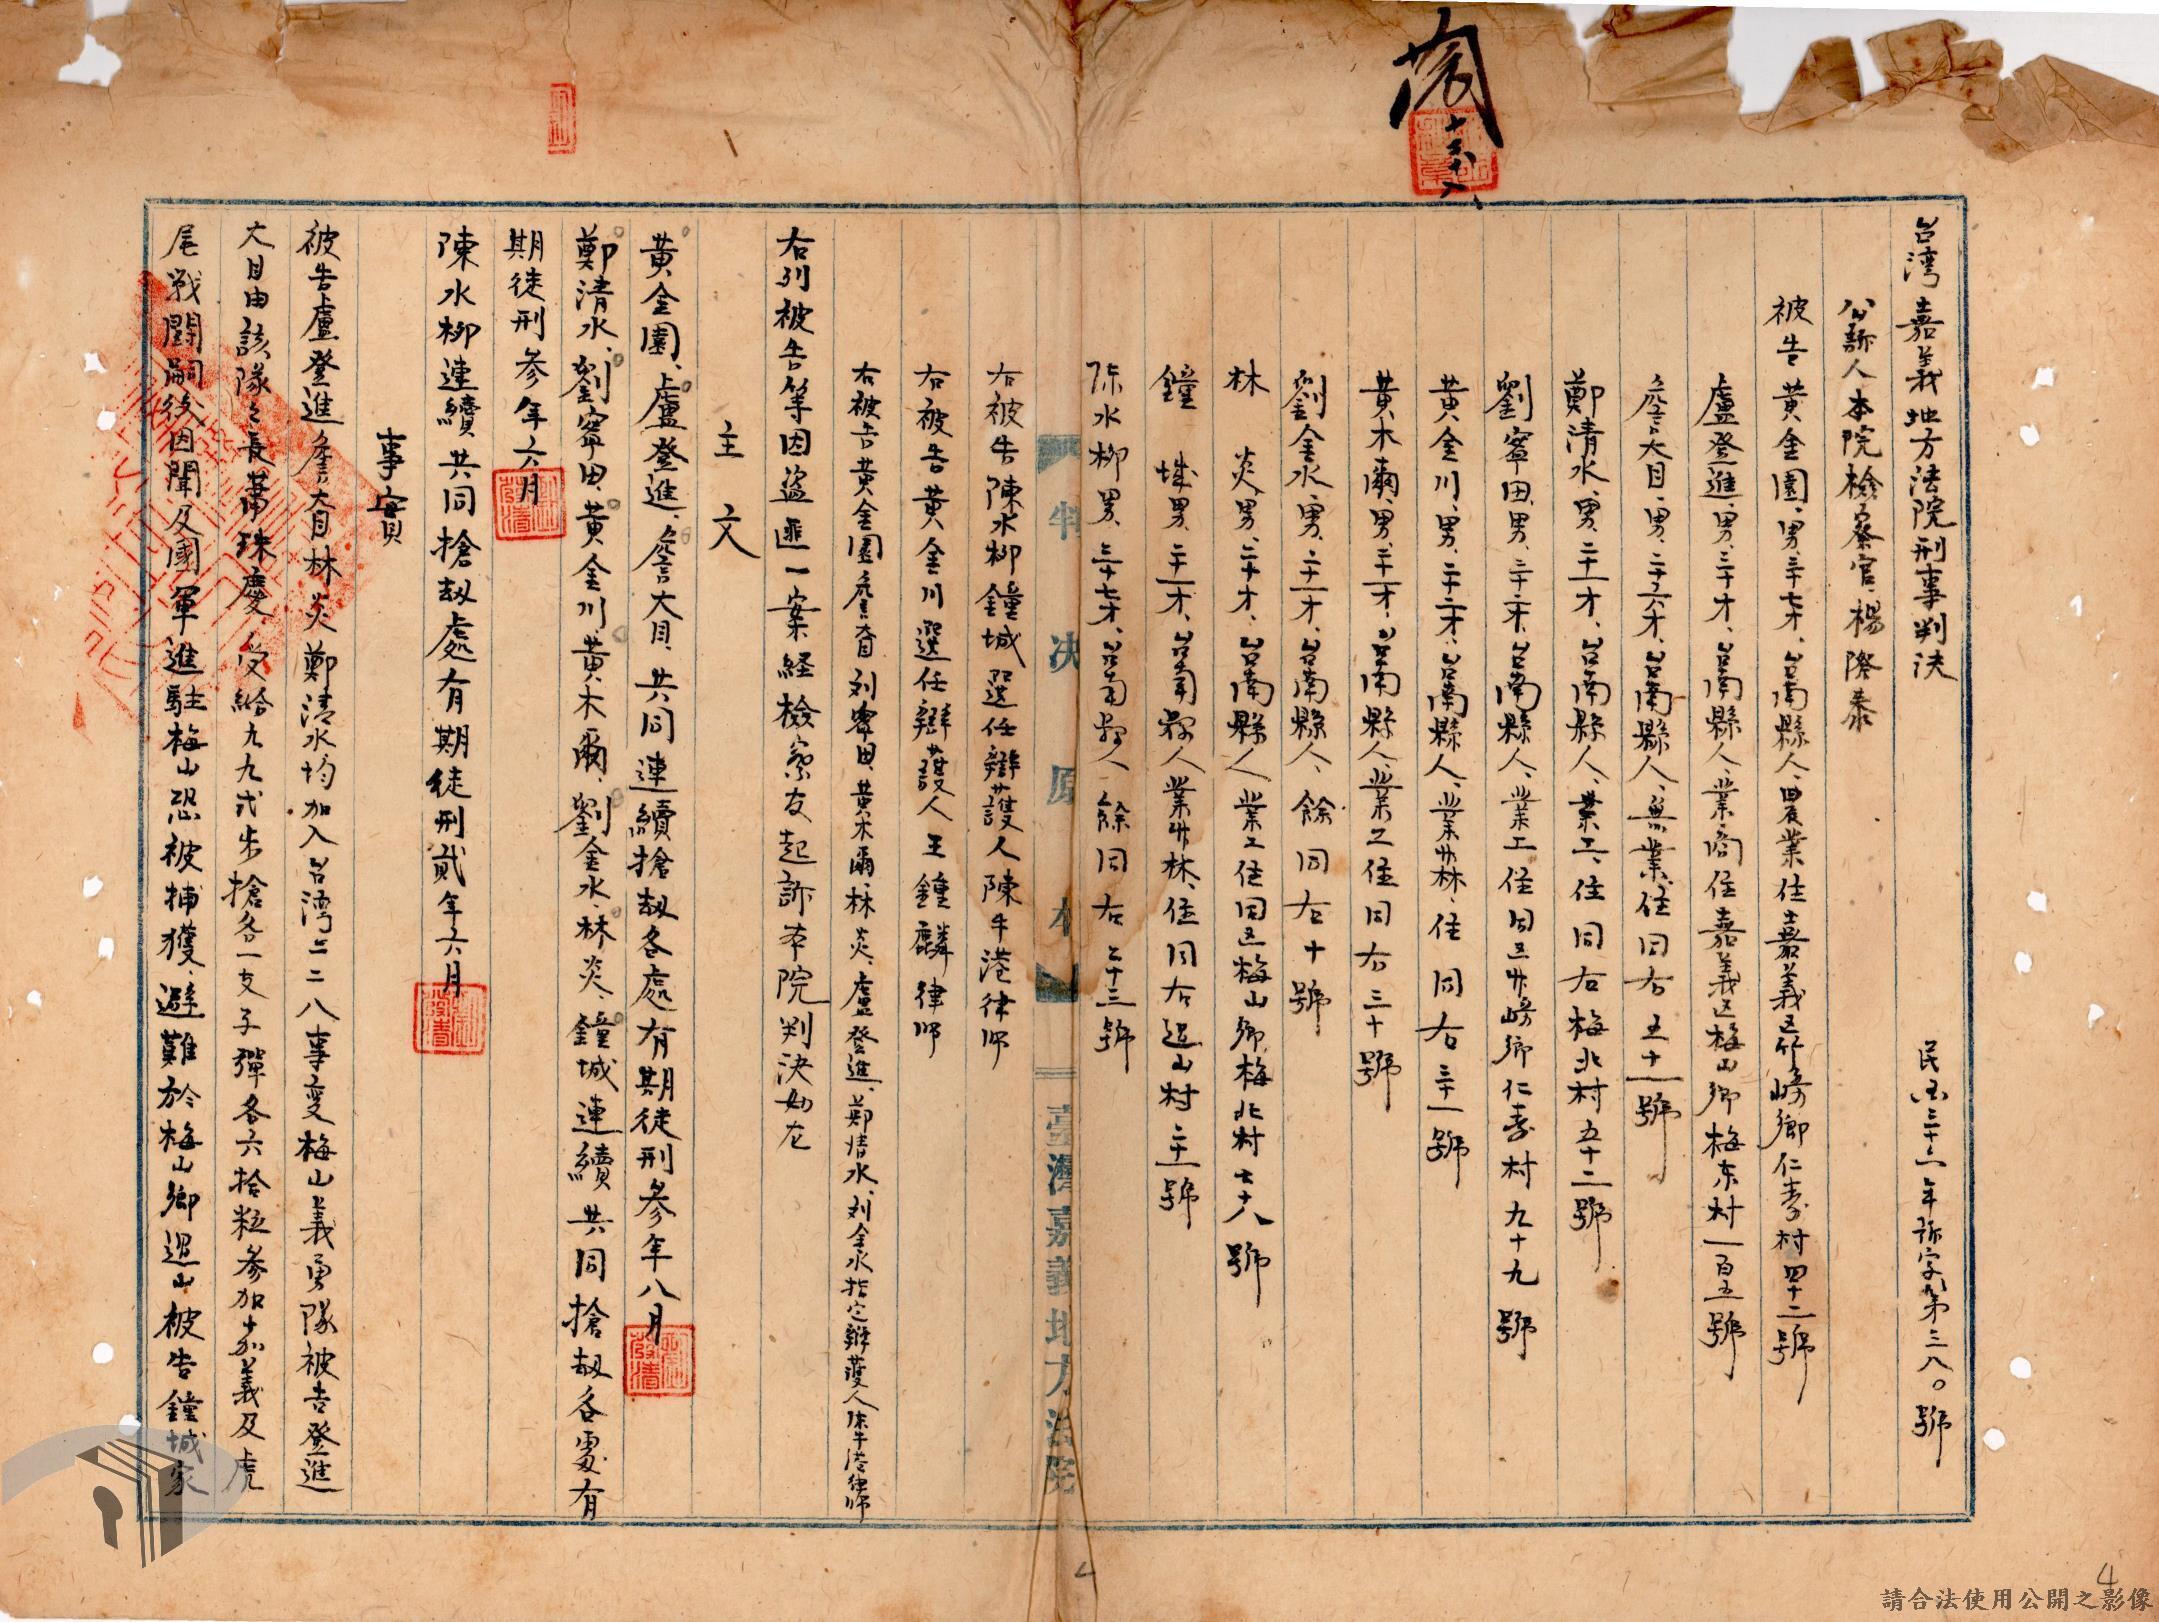 台湾嘉義地方法院刑事判決 民国三十六年訴字第三八〇號
公訴人本院檢察官楊
被告黄金園、男、三十七才、台南縣人、農業住嘉義区竹崎鄉仁壽村四十二號
盧登進、男、三十才、台南縣人、業商住嘉義区梅山鄉梅东村一百五號
詹大目、男、二十六才、台南縣人、無業、住同右五十一號
鄭清水、男、二十一才、台南縣人、業工、住同右梅北村五十二號
劉寧田、男、三十才、台南縣人、業工住同区竹崎鄉仁壽村九十九號
黄金川、男、二十二才、台南縣人、業林、住同右三十一號
黄木爾、男、二十一才、台南縣人、業工住同右三十號
劉金水、男、二十一才、台南縣人、餘同右十號
林炎、男、二十才、台南縣人業工住同区梅山鄉梅北村七十八號
鐘城男、二十一才、台南縣人業林、住同右過山村二十一號
陈水柳男、三十七才、台南縣人餘同右二十三號
判决原本 臺灣嘉義地方法院
右被告陳水柳鐘城選任辯護人陳牛港律师
右被告黄金川選任辯護人王鍾麟律师
右被告黄金園詹大目刘寧田、黄木爾林炎、盧登進、鄭清水、刘金水指定辯護人陈牛港律师
右列被告等因盜匪一案経檢察友起訴本院判決如左
主文
黄金園、盧登進、詹大目、共同連續搶劫各處有期徒刑參年八月
鄭清水、劉寧田、黄金川、黄木爾、劉金水、林炎、鐘城連續共同搶劫各處有
期徒刑參年六月
陳水柳連續共同搶劫處有期徒刑貳年六月
事實
被告盧登進詹大目林炎鄭清水均加入台湾二二八事变梅山義勇隊被告登進
大目由該隊之長葉珠慶、受給九九式步搶各一支子彈各六拾粒參加嘉義及虎
尾戰鬪嗣後因聞及國軍進駐梅山恐被捕獲、避難於梅山鄉過山被告鐘城家
4
請合法使用公開之影像